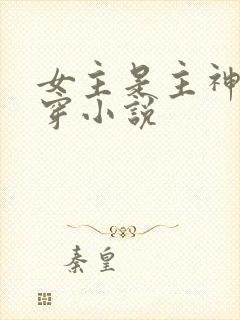 女主是主神
穿小說
秦皇